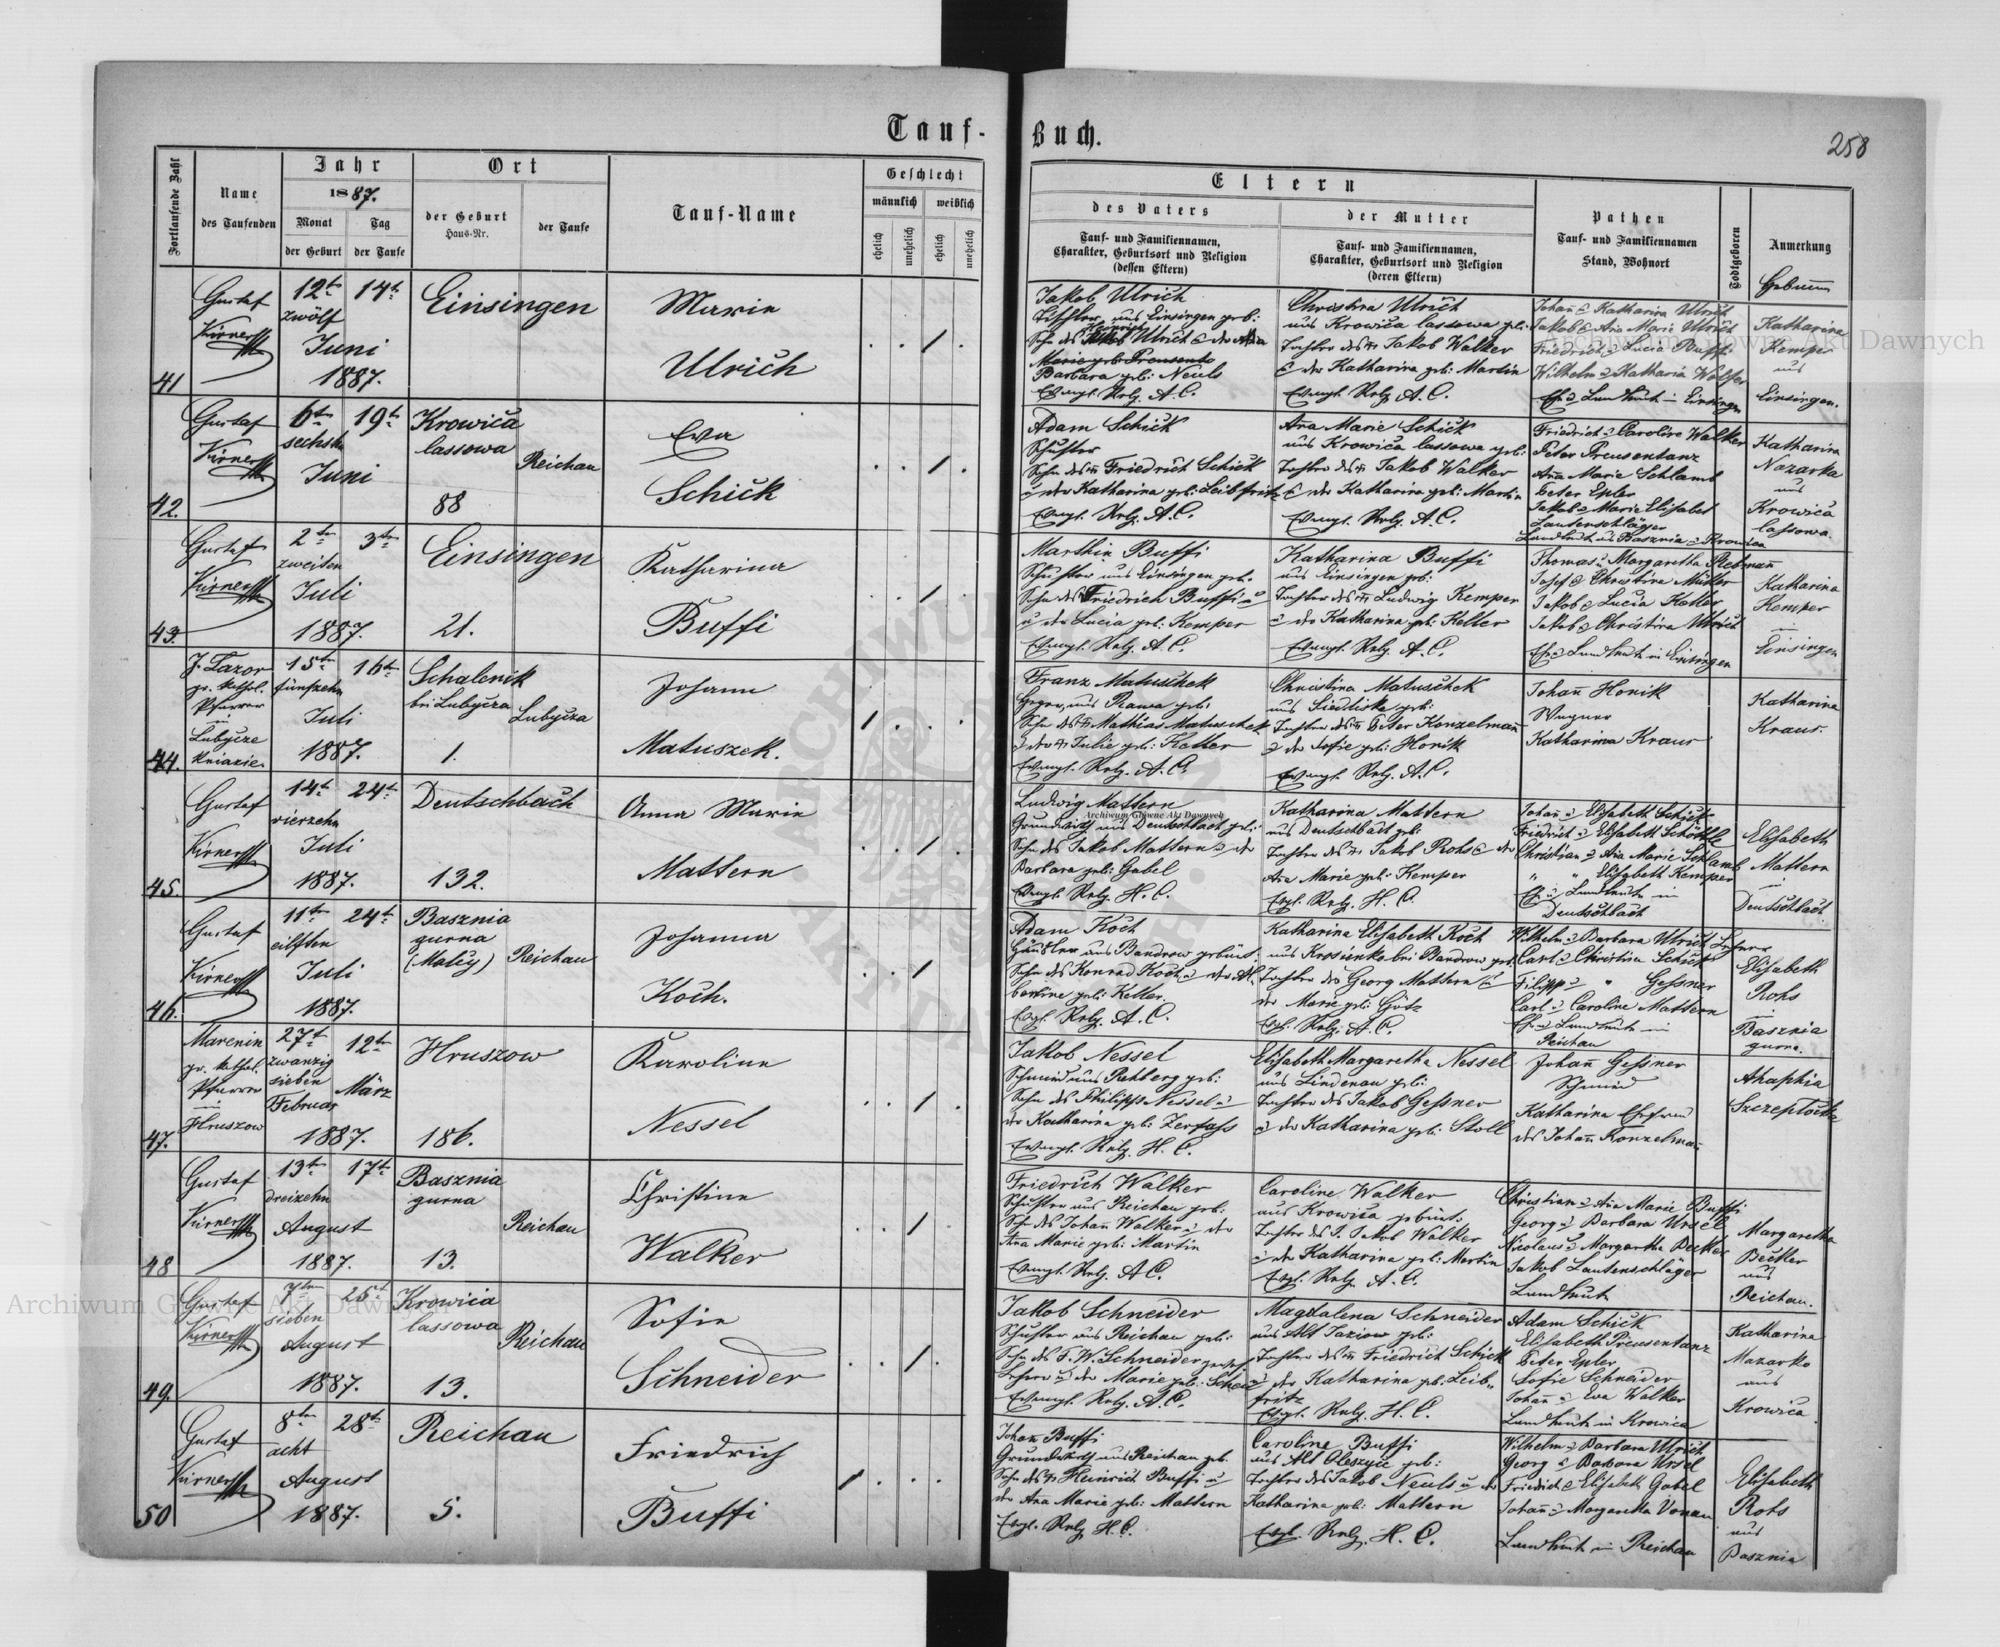 Tauf-Buch.
258
Fortlaufende Zahl
Name
des Taufenden
Jahr
1887.
Monat
der Geburt
Tag
der Taufe
Ort
der Geburt
Haus-Nr.
der Taufe
Tauf-Name
Geschlecht
männlich
weiblich
ehelich
unehelich
ehelich
unehelich
Eltern
des Vaters
Tauf- und Familiennamen,
Charakter, Geburtsort und Religion
(dessen Eltern)
der Mutter
Tauf- und Familiennamen,
Charakter, Geburtsort und Religion
(deren Eltern)
Pathen
Tauf- und Familiennamen
Stand, Wohnort
Todtgeboren
Anmerkung
41
Gustaf
12t
zwölf
Juni
1887.
14t
Einsingen
Marie
Ulrich
Jakob Ulrich
Tischler aus Einsingen geb:
Sohn des Heinrich Ulrich & der
Barbara geb: Neuls
Evangl. Relg. A.C.
Christina Ulrich
aus Krowica lassowa geb:
Tochter des Jakob Walker
& der Katharina geb: Martin
Evangl. Relg A.C.
Johañ & Katharina Ulrich
Jakob & Aña Marie Ulrich
Friedrich & Lucia Buffi
Katharina
Kemper
aus
Einsingen.
42.
Gustaf
6t
Juni
19t
Krowica
lassowa
88
Reichau
Eva
Schick
Adam Schick
Schuster
Sohn des Friedrich Schick
u der Katharina geb: Leibfritz
Evangl. Relg. A.C.
Aña Marie Schick
aus Krowica lassowa geb:
Tochter des Jakob Walker
& der Katharina geb: Martin
Evangl. Relg. A.C.
Friedrich & Caroline Walker
Peter Preusentanz
Aña Marie Schlamb
Peter Epler
Jakob & Marie Elisabet
Lautenschläger
Katharina
Nazarka
aus
Krowica
lassowa.
43.
Gustaf
2t
zweiten
Juli
1887.
3t
Einsingen
21.
Katharina
Buffi
Marthin Buffi
Schuster aus Einsingen geb.
Sohn des Friedrich Buffi u
u der Lucia geb: Kemper
Evangl. Relg. A.C.
Katharina Buffi
aus Einsingen geb:
Tochter des Ludwig Kemper
u der Katharina geb: Keller
Evangl. Relg. A.C.
Thomas u Margaretha
Josef & Christina Müller
Jakob & Lucia Koller
Jakob & Christina Ulrich
Katharina
Kemper
in
Einsingen
44.
J. Lazor
gr. kathol.
Pfarrer
in
Lubycze
kniazie.
15t
fünfzehn
Juli
1887.
16t
Schalenik
bei Lubycza
1.
Lubycza
Johann
Matuszek.
Franz Matuschek
Heger aus Rawa geb:
Sohn des Mathias Matuschek
& der Julie geb: Kotter
Evangl. Relg. A.C.
Christina Matuschek
aus Siedliska geb:
Tochter des Peter Konzelmañ
& der Sofie geb: Honik
Evangl. Relg. A.C.
Johañ Honik
Wagner
Katharina Kraus
Katharina
Kraus.
45.
Gustaf
14t
vierzehn
Juli
1887.
24t
Deutschbach
132.
Anna Marie
Mattern
Ludwig Mattern
Grundwirth aus Deutschbach geb:
Sohn des Jakob Mattern & der
Barbara geb: Gabel
Evangl. Relg. H.C.
Katharina Mattern
aus Deutschbach geb:
Tochter des Jakob Rohs & der
Aña Marie geb: Kemper
Evgl. Relg. H.C.
Johañ & Elisabeth Schick
Christian & Aña Marie Schlamb
" " Elisabeth Kemper
Deutschbach
Elisabeth
Mattern
in
Deutschbach
46.
Gustaf
11t
eilften
Juli
1887.
24t
Basznia
gurna
Reichau
Johanna
Koch.
Adam Koch
Häusler aus Bandrow gebürt.
Sohn des Konrad Koch & der Al-
bertine geb: Keller
Evgl. Relg. A.C.
Katharina Elisabeth Koch
aus Krosienko bei Bandrow geb:
Tochter des Georg Mattern u
der Marie geb: Götz
Evgl. Relg. A.C.
Wilhelm & Barbara Ulrich Lehrer
Carl & Christina Schick
Filipp & " Gessner
Carl & Caroline Mattern
Reichau
Elisabeth
Rohs
in
Basznia
gurna.
47.
Marenin
gr. kathol.
Pfarrer
in
Hruszow
27t
zwanzig
sieben
Februar
1887.
12t
März
Hruszow
186.
Karoline
Nessel
Jakob Nessel
Schmied aus Rehberg geb:
Sohn des Philipp Nessel u
der Katharina geb: Zerfass
Evangl. Relg. H.C.
Elisabeth Margaretha Nessel
aus Lindenau geb:
Tochter des Jakob Gessner
& der Katharina geb: Stoll
Johañ Gessner
Schmied
Katharina Ehefrau
des Johañ Konzelmañ
Ahaphia
48
Gustaf
13t
dreizehn
August
1887.
17t
Basznia
gurna
13.
Reichau
Christine
Walker
Friedrich Walker
Schuster aus Reichau geb:
Sohn des Johañ Walker & der
Aña Marie geb: Martin
Evangl. Relg. A.C.
Caroline Walker
aus Krowica gebürt.
Tochter des Jakob Walker
& der Katharina geb: Martin
Evgl. Relg. A.C.
Christian & Aña Marie Buffi
Georg & Barbara Ursel
Nicolaus & Margartha Becker
Jakob Lautenschläger
Margaretha
Beckler
aus
Reichau.
49.
Gustaf
7t
sieben
August
1887.
25t
Krowica
lassowa
13.
Reichau
Sofie
Schneider
Jakob Schneider
Schuster aus Reichau geb:
Evangl. Relg. A.C.
Magdalena Schneider
Tochter des Friedrich Schick
& der Katharina geb: Leib-
fritz
Evgl. Relg. H.C.
Adam Schick
Elisabeth Preusentanz
Peter Epler
Sofie Schneider
Johañ & Eva Walker
Katharina
Mazarko
aus
Krowica
50
Gustaf
8t
acht
August
1887.
28t
Reichau
5.
Friedrich
Buffi
Johañ Buffi
Grundwirth aus Reichau geb.
Sohn des Heinrich Buffi u
der Aña Marie geb: Mattern
Evgl. Relg H.C.
Caroline Buffi
aus Alt Oleszyce geb:
Tochter des Jakob Neuls u der
Katharina geb: Mattern
Evgl. Relg. H.C.
Wilhelm & Barbara Ulrich
Georg & Barbara Ursel
Friedrich & Elisabeth Gabel
Johañ & Margaretha Vonau
Elisabeth
Rohs
aus
Basznia
Archiwum Główne Akt Dawnych
Archiwum Główne Akt Dawnych
Archiwum Główne Akt Dawnych